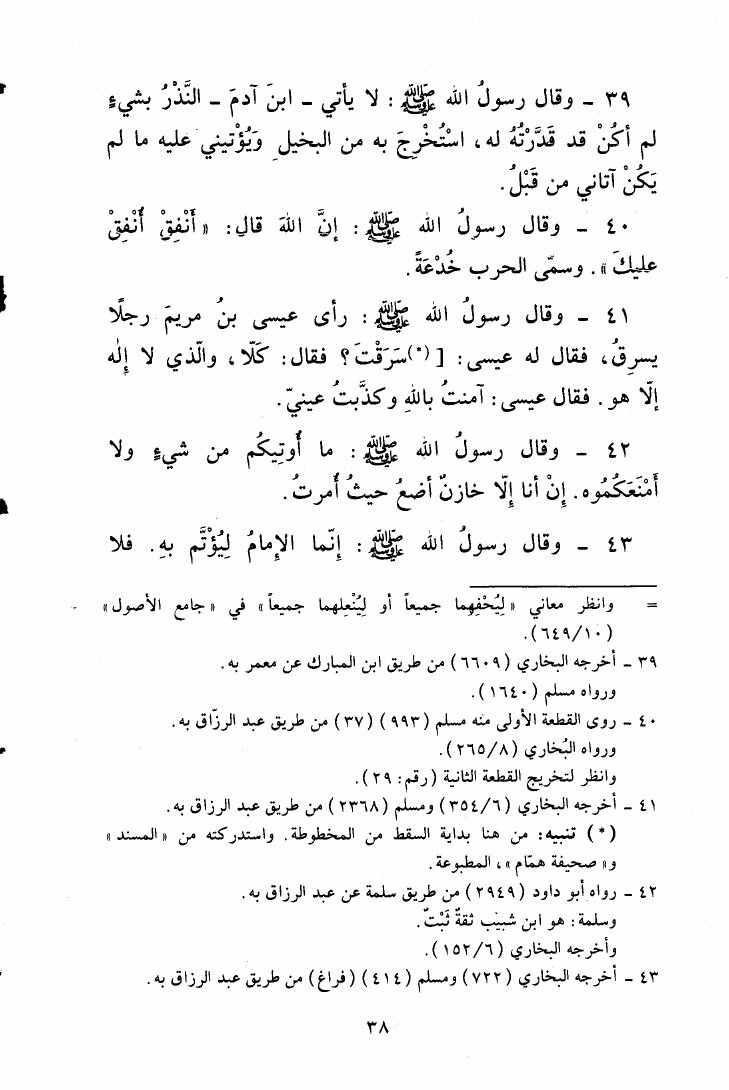 ٣٩ ـ وقال رسولُ الله ﷺ : لا يأتي ـ ابنَ آدمَ ـ النَّذْرُ بشيءٍ
لم أكُنْ قد قَدَّرْتُهُ له، اسْتُخْرِجَ به من البخيل وَيُؤْتيني عليه ما لم
يَكُنْ آتاني من قَبْلُ.
٤٠ ـ وقال رسولُ الله ﷺ : إنَّ اللهَ قال: «أَنْفِقْ أُنْفِقْ
عليكَ». وسمّى الحرب خُدْعَةً.
٤١ ـ وقال رسولُ الله ﷺ : رأى عيسى بنُ مريمَ رجلًا
يسرِقُ، فقال له عيسى: [(*)سَرَقْتَ؟ فقال: كَلّا، والّذي لا إِلٰه
إلّا هو. فقال عيسى: آمنتُ باللهِ وكذَّبتُ عينيّ.
٤٢ ـ وقال رسولُ الله ﷺ : ما أُوتِيكُم من شيءٍ ولا
أَمْنَعَكُمُوه. إنْ أنا إلّا خازنٌ أضعُ حيثُ أُمرتُ.
٤٣ ـ وقال رسولُ الله ﷺ : إنّما الإمامُ لِيُؤْتَم بهِ. فلا
= وانظر معاني «لِيُحْفِهِما جميعاً أو لِيُنْعِلهما جميعاً» في «جامع الأصول»
(٦٤٩/١٠).
٣٩ ـ أخرجه البخاري (٦٦٠٩) من طريق ابن المبارك عن معمر به.
ورواه مسلم (١٦٤٠).
٤٠ ـ روى القطعة الأولى منه مسلم (٩٩٣) (٣٧) من طريق عبد الرزّاق به.
ورواه البُخاري (٢٦٥/٨).
وانظر لتخريج القطعة الثانية (رقم: ٢٩).
٤١ ـ أخرجه البخاري (٣٥٤/٦) ومسلم (٢٣٦٨) من طريق عبد الرزاق به.
(*) تنبيه: من هنا بداية السقط من المخطوطة. واستدركته من «المسند»
و«صحيفة همّام»، المطبوعة.
٤٢ ـ رواه أبو داود (٢٩٤٩) من طريق سلمة عن عبد الرزاق به.
وسلمة: هو ابن شبيب ثقةٌ ثَبْتٌ.
وأخرجه البخاري (١٥٢/٦).
٤٣ ـ أخرجه البخاري (٧٢٢) ومسلم (٤١٤) (فراغ) من طريق عبد الرزاق به.
٣٨